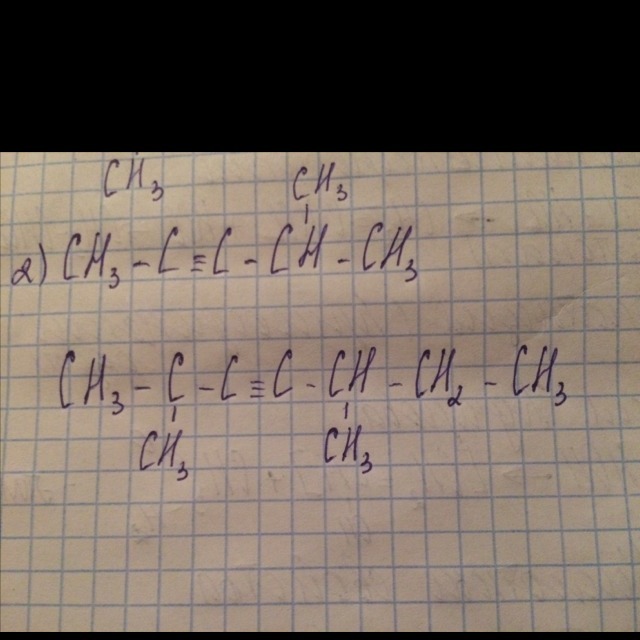 CH₃ CH₃
2) CH₃ - C ≡ C - CH - CH₃
CH₃ - C - C ≡ C - CH - CH₂ - CH₃
CH₃ CH₃